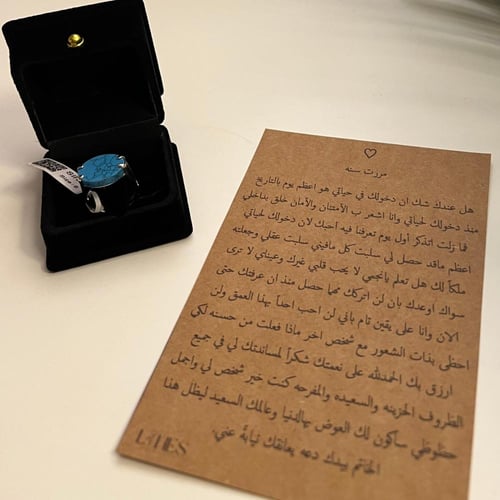 مررت سنه
هل عندك شك ان دخولك في حياتي هو اعظم يوم بالتاريخ
منذ دخولك لحياتي وانا اشعر ب الأمتنان والأمان خلق بداخلي
فما زلت اتذكر أول يوم تعرفنا فيه احبك لان دخولك لحياتي
اعظم ماقد حصل لي سلبت كل مافيني سلبت عقلي وجعلته
ملكاً لك هل تعلم يانجمي لا يحب قلبي غيرك وعيناي لا ترى
سواك اوعدك بان لن اتركك مهما حصل منذ ان عرفتك حتى
الان وانا على يقين تام باني لن احب احداً بهذا العمق ولن
احظى بذات الشعور مع شخص اخر ماذا فعلت من حسنه لكي
ارزق بك الحمدلله على نعمتك شكراً لمساندتك لي في جميع
الظروف الحزينه والسعيده والمفرحه كنت خير شخص لي واجمل
حظوظي سأكون لك العوض بهالدنيا وعالمك السعيد ليظل هذا
الخاتم بيدك دعه يعانقك نيابةً عني.